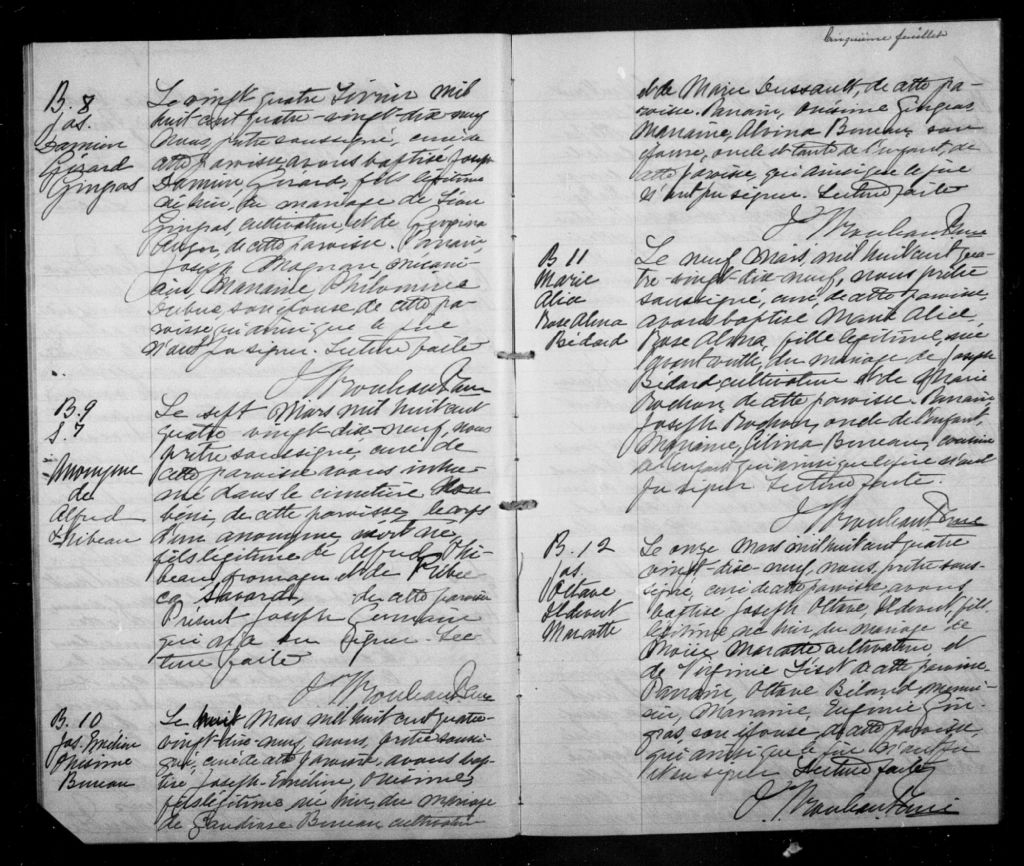 B. 8
Jos.
Damien
Gérard
Gingras
Le vingt quatre Février mil
huit cent quatre-vingt-dix-neuf
Nous, prêtre soussigné, curé de
cette paroisse avons baptisé Joseph
Damien Gérard, fils légitime
né hier, du mariage de
Gingras, cultivateur et de Georgina
de cette paroisse. Parrain,
Joseph Magnan, mécani-
cien Marraine, Philomène
Dubuc, son épouse de cette pa-
roisse qui ainsi que le père
n'ont pu signer. Lecture faite
J Rouleau Ptre curé
B. 9
S. 7
Anonyme
de
Alfred
Thibeau
Le sept Mars mil huit cent
quatre vingt-dix-neuf, nous
prêtre soussigné, curé de
cette paroisse avons inhu-
mé dans le cimetière non
béni, de cette paroisse, le corps
d'un anonyme mort-né,
fils légitime de Alfred Thi-
beau, fromager et de Rébec
ca Savard, de cette paroisse
Présent Joseph Germain
qui n'a su signer. Lec
ture faite
J Rouleau Ptre curé
B. 10
Jos. Emélien
Onésime
Bureau
Le huit Mars mil huit cent quatre-
vingt-dix-neuf, nous, prêtre soussi-
gné, curé de cette paroisse, avons bap-
tisé, Joseph-Emélien, Onésime,
fils légitime né hier, du mariage
de Gaudiose Bureau, cultivateur
Cinquième feuillet
et de Marie Dussault, de cette pa-
roisse. Parrain, Onésime Gingras
Marraine, Alvina Bureau, son
épouse, oncle et tante de l'enfant, de
cette paroisse, qui ainsi que le père
n'ont pu signer. Lecture faite
J Rouleau Ptre curé
B 11
Marie
Alice
Rose Alma
Bédard
Le neuf Mars, mil huit cent qua-
tre-vingt-dix-neuf, nous prêtre
soussigné, curé, de cette paroisse,
avons baptisé Marie Alice,
Rose Alma, fille légitime, née
avant-veille, du mariage de Joseph
Bédard cultivateur et de Marie
Rochon, de cette paroisse. Parrain
Joseph Rochon, oncle de l'enfant,
Marraine, Célina Bureau, cousine
de l'enfant qui ainsi que le père n'ont
pu signer. Lecture faite.
J Rouleau Ptre curé
B. 12
Jos.
Octave
Ildevert
Marcotte
Le onze Mars mil huit cent quatre
vingt-dix-neuf, nous, prêtre sous-
signé, curé de cette paroisse avons
baptisé Joseph Octave Ildevert, fils
légitime né hier, du mariage de
Moïse Marcotte cultivateur et
de Virginie de cette paroisse.
Parrain, Octave Béland menui-
sier, Marraine, Eugénie Gin-
gras son épouse, de cette paroisse,
qui ainsi que le père n'ont pu
signer Lecture faite
J. Rouleau Ptre curé